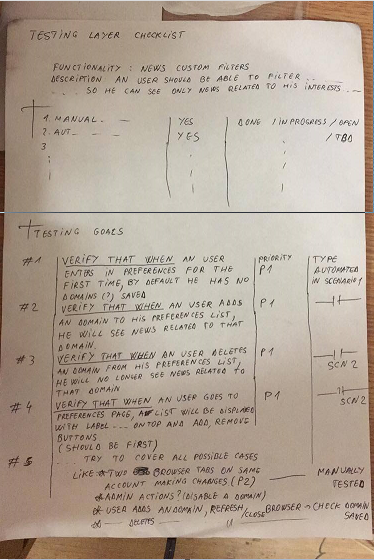 TESTING LAYER CHECKLIST
FUNCTIONALITY : NEWS CUSTOM FILTERS
DESCRIPTION AN USER SHOULD BE ABLE TO FILTER ...
.... SO HE CAN SEE ONLY NEWS RELATED TO HIS INTERESTS ...
1. MANUAL - - YES DONE / IN PROGRESS / OPEN
2. AUT - - YES / TBD
3
TESTING GOALS
#1 VERIFY THAT WHEN AN USER PRIORITY TYPE
ENTERS IN PREFERENCES FOR THE P1 AUTOMATED
FIRST TIME, BY DEFAULT HE HAS NO IN SCENARIO 1
DOMAINS (?) SAVED
#2 VERIFY THAT WHEN AN USER ADDS P1 -11-
AN DOMAIN TO HIS PREFERENCES LIST,
HE WILL SEE NEWS RELATED TO THAT
DOMAIN.
#3 VERIFY THAT WHEN AN USER DELETES P1 -11-
AN DOMAIN FROM HIS PREFERENCES LIST, SCN 2
HE WILL NO LONGER SEE NEWS RELATED TO
THAT DOMAIN
#4 VERIFY THAT WHEN AN USER GOES TO P1 -11-
PREFERENCES PAGE, A LIST WILL BE DISPLAYED SCN 2
WITH LABEL ... ON TOP AND ADD, REMOVE
BUTTONS
(SHOULD BE FIRST)
#5 ... TRY TO COVER ALL POSSIBLE CASES
LIKE * TWO BROWSER TABS ON SAME MANUALLY
ACCOUNT MAKING CHANGES (P2) TESTED
* ADMIN ACTIONS? (DISABLE A DOMAIN)
* USER ADDS AN DOMAIN, REFRESH /CLOSE BROWSER → CHECK DOMAIN SAVED
* — DELETES — 11 —